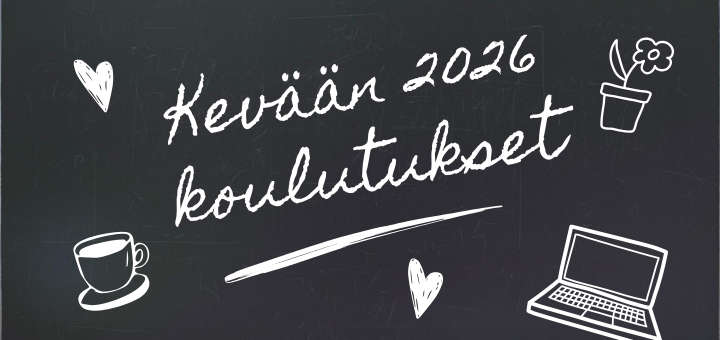 Kevään 2026
koulutukset